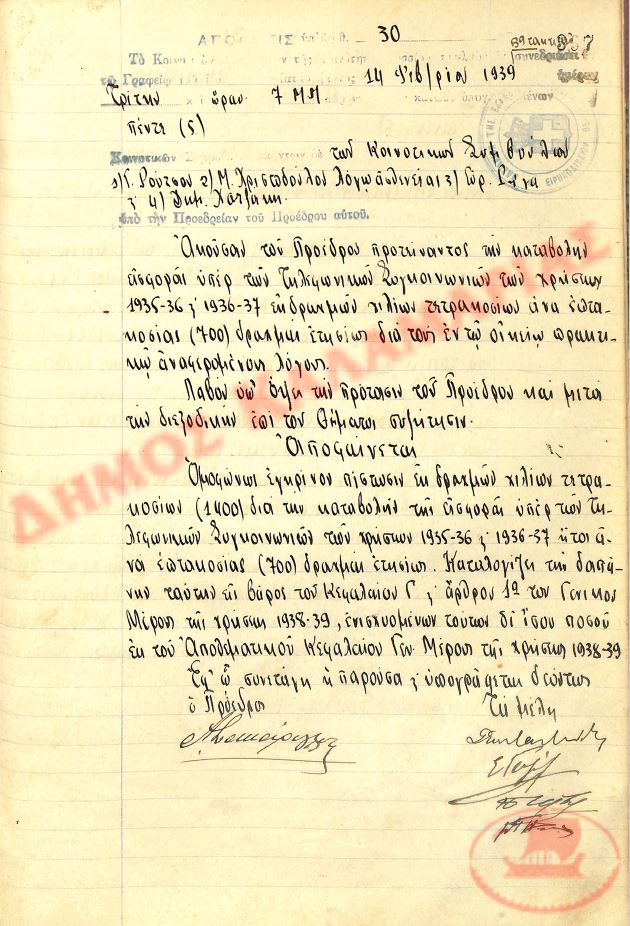 ΑΠΟΦΑΣΙΣ ὑπ' ἀριθ. 30
Τὸ Κοινοτικὸν συνεδριάσαν
τῷ Γραφείῳ 14 Φεβ/ρίου 1939 ἡμέραν
Τρίτην καὶ ὥραν 7 ΜΜ
πέντε (5)
Κοινοτικῶν τῶν Κοινοτικῶν Συμβούλων
1) Γ. Ρούτσου 2) Μ. Χριστοπούλου λόγῳ ἀσθενείας 3)
ὑπὸ τὴν Προεδρείαν τοῦ Προέδρου αὐτοῦ.
Ἀκοῦσαν τοῦ Προέδρου προτείναντος τὴν καταβολὴν
εἰσφορᾶς ὑπὲρ τῶν Τηλεφωνικῶν Συγκοινωνιῶν τῶν χρήσεων
1935-36 ϗ 1936-37 ἐκ δραχμῶν χιλίων τετρακοσίων ἀνὰ ἑπτα-
κοσίας (700) δραχμὰς ἐτησίως διὰ τοὺς ἐν τῷ οἰκείῳ πρακτι-
κῷ ἀναφερομένους λόγους.
Λαβὸν ὑπ' ὄψει τὴν πρότασιν τοῦ Προέδρου καὶ μετὰ
τὴν διεξοδικὴν ἐπὶ τοῦ θέματος συζήτησιν.
Ἀποφαίνεται
Ὁμοφώνως ἐγκρίνον πίστωσιν ἐκ δραχμῶν χιλίων τετρα-
κοσίων (1400) διὰ τὴν καταβολὴν τῆς εἰσφορᾶς ὑπὲρ τῶν Τη-
λεφωνικῶν Συγκοινωνιῶν τῶν χρήσεων 1935-36 ϗ 1936-37 ἤτοι ἀ-
νὰ ἑπτακοσίας (700) δραχμὰς ἐτησίως. Καταλογίζει τὴν δαπά-
νην ταύτην εἰς βάρος τοῦ Κεφαλαίου Γ ϗ ἄρθρου 1ου τοῦ Γενικοῦ
Μέρους τῆς χρήσεως 1938-39, ἐνισχυομένων τούτων δι' ἴσου ποσοῦ
ἐκ τοῦ Ἀποθεματικοῦ Κεφαλαίου Γεν. Μέρους τῆς χρήσεως 1938-39
Ἐφ' ᾧ συνετάγη ἡ παροῦσα ϗ ὑπογράφεται δεόντως
ὁ Πρόεδρος Τὰ μέλη
ΔΗΜΟΣ ΚΑΛΑΜΑΡΙΑΣ